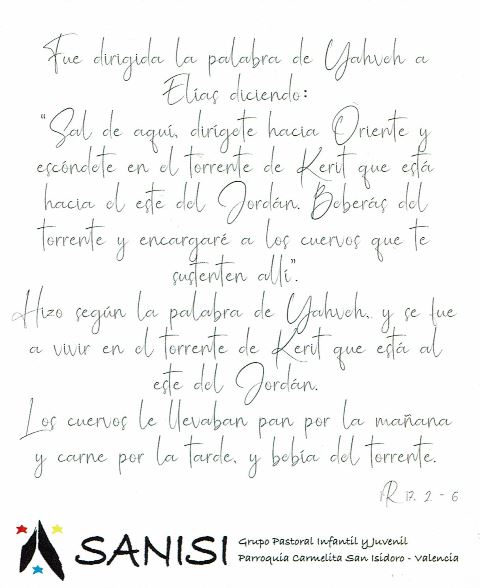 Fue dirigida la palabra de Yahveh a
Elías diciendo:
"Sal de aquí, dirígete hacia Oriente y
escóndete en el torrente de Kerit que está
hacia el este del Jordán. Beberás del
torrente y encargaré a los cuervos que te
sustenten allí".
Hizo según la palabra de Yahveh, y se fue
a vivir en el torrente de Kerit que está al
este del Jordán.
Los cuervos le llevaban pan por la mañana
y carne por la tarde, y bebía del torrente.
1R 17, 2 - 6
SANISI
Grupo Pastoral Infantil y Juvenil
Parroquia Carmelita San Isidoro - Valencia